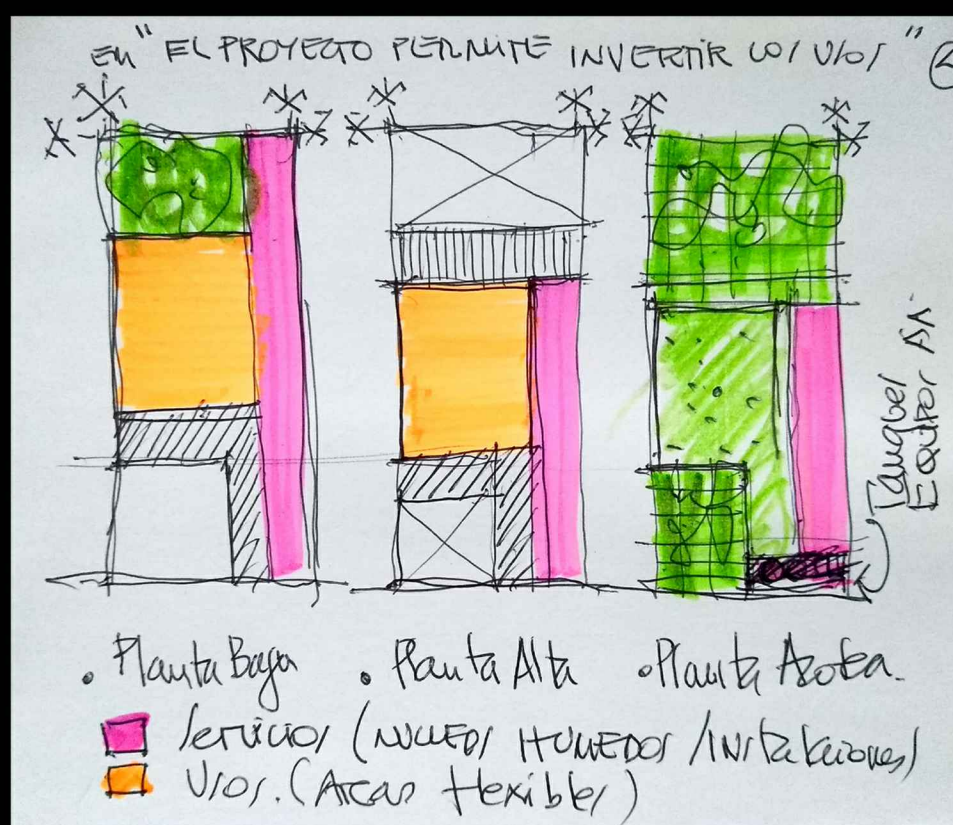 en "EL PROYECTO PERMITE INVERTIR LOS USOS"
Tanques
Equipos AA.
• Planta Baja • Planta Alta • Planta Azotea.
Servicios (NUCLEOS HUMEDOS / Instalaciones)
Usos. (Areas flexibles)